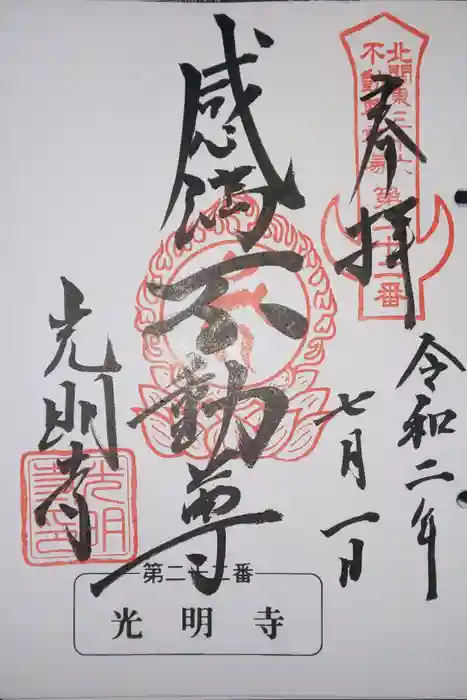 北関東三十六
不動尊霊場
第二十二番
奉拝
令和二年
七月一日
感満不動尊
光明寺
第二十二番
光明寺